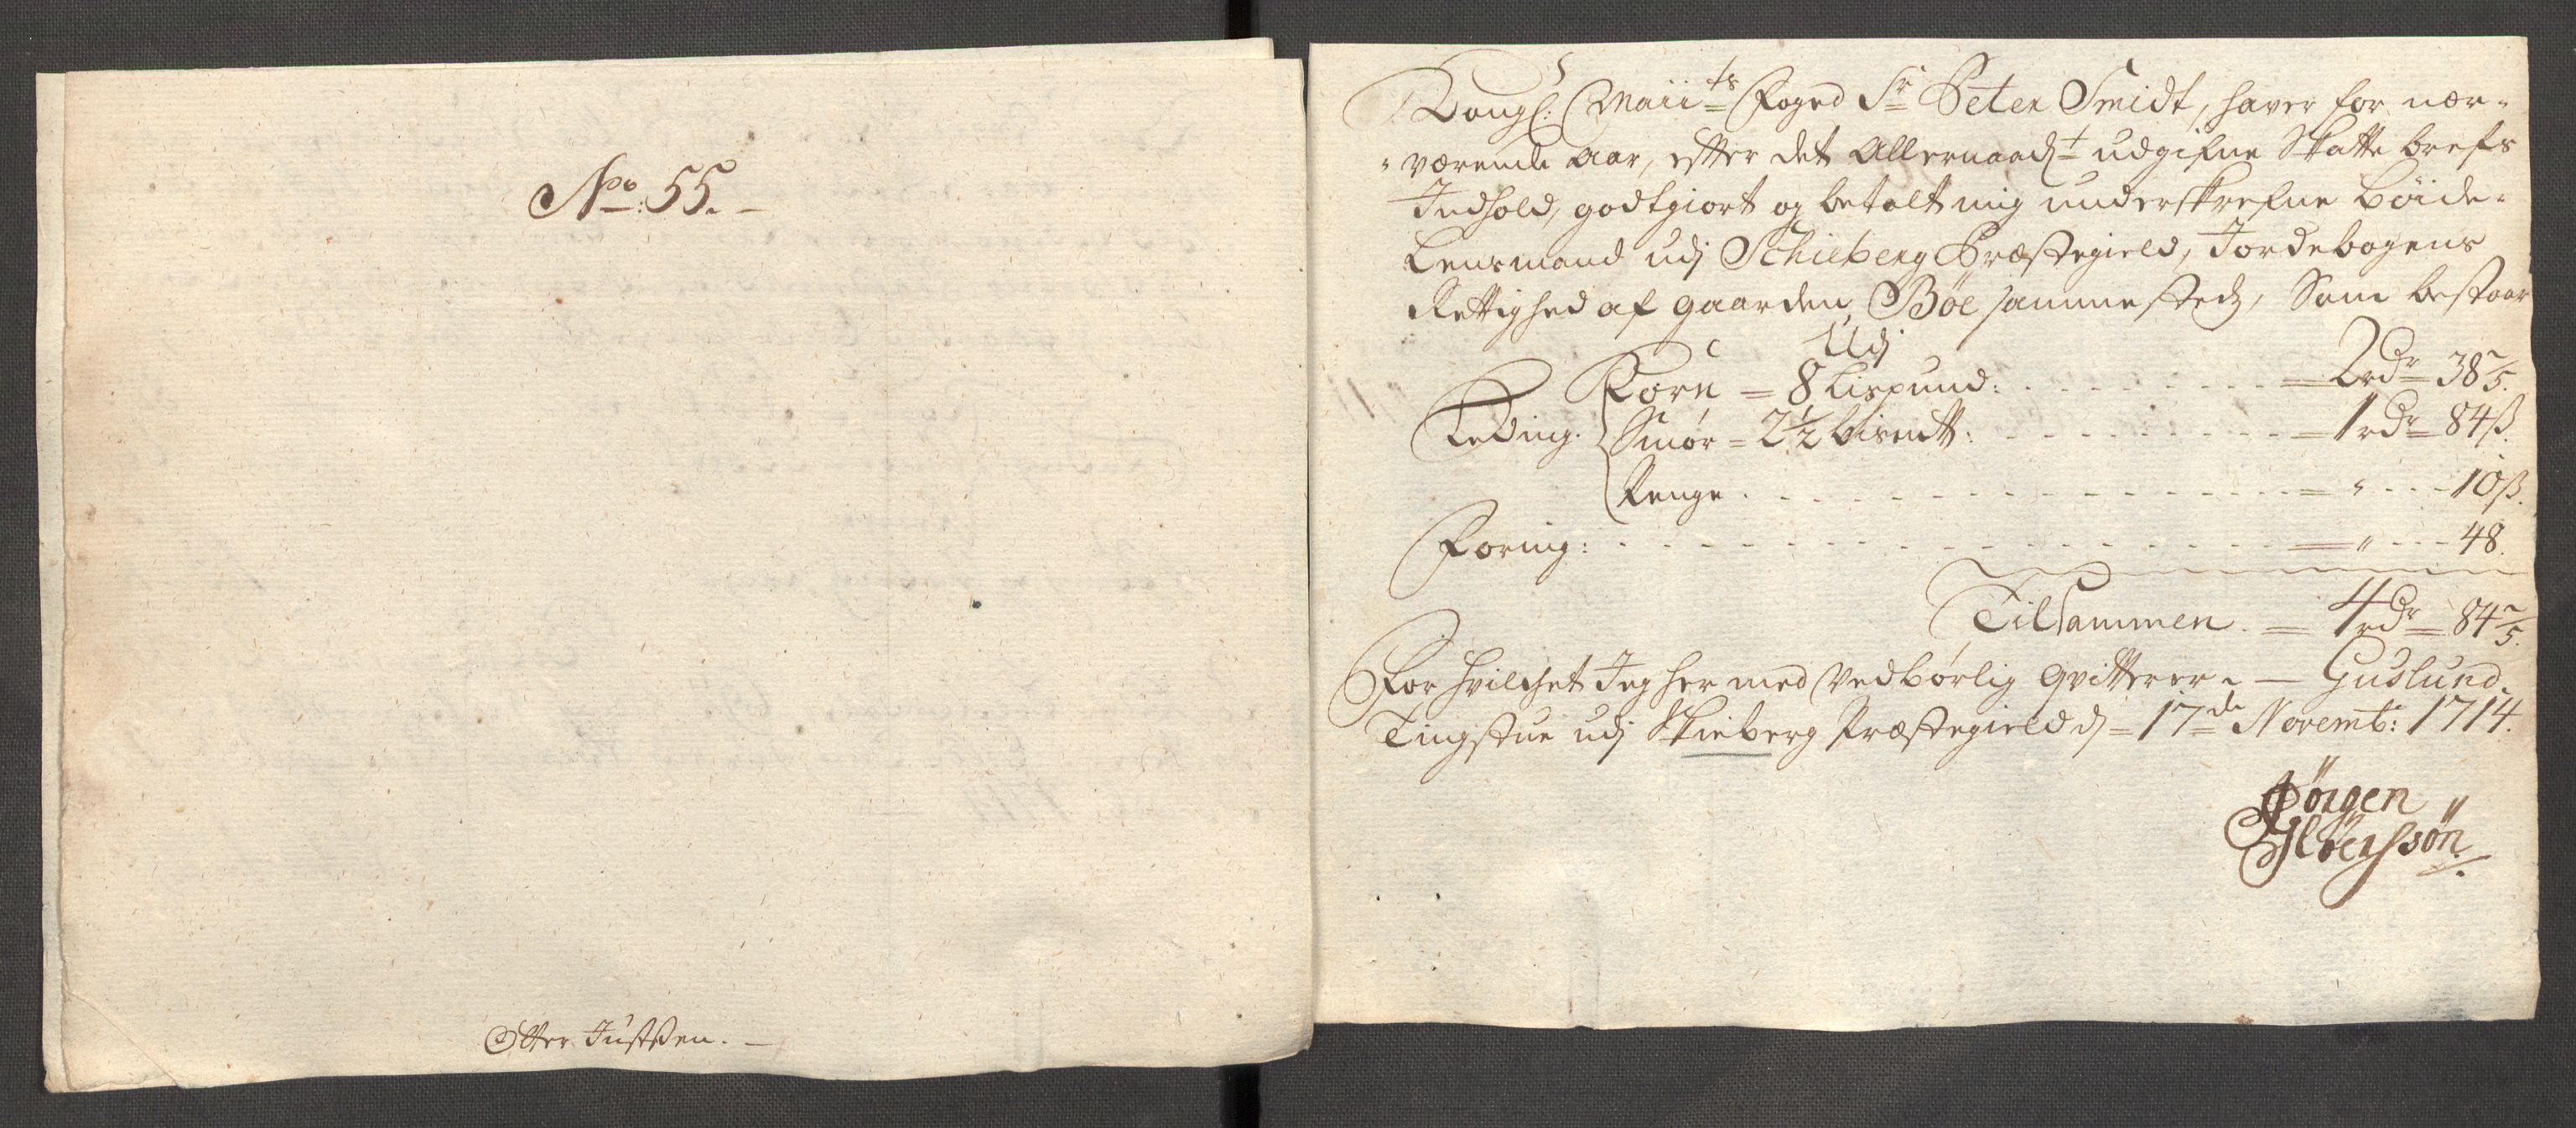 No: 55.
Otter Justsen.
Kongl: Maiits Foged Sr Peter Smidt, haver for nær-
værende aar, efter det Allernaadt udgifne Skatte brefs
Indhold, godtgiort og betalt mig underskrefne böide-
Lensmand udj Schieberg Præstegield, Jordebogens
Rettighed af gaarden Böe sammestedz, Som bestaar
Udj
Korn = 8 Lispund: = 2 rdr = 38 2/5.
Leding. Smör = 2 1/2 bismtt: = 1 rdr = 84 ß.
Penge = " 10 ß.
Foring: = " 48.
Tilsammen. = 4 rdr = 84 2/5.
For hvilchet Jeg her med Vedbørlig qvitterer. — Guslund
Tingstue udj Skieberg Præstegield d = 17de Novemb: 1714.
Jörgen